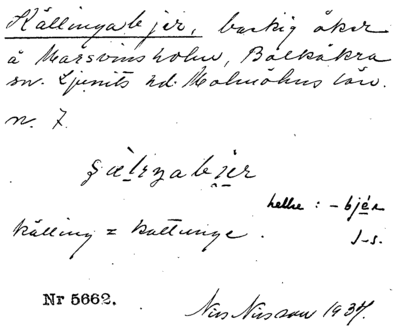 Källingabjer, backig åker
å Marsvinsholm, Balkåkra
sn. Ljunits hd. Malmöhus län.
n. 7.
hellre : -bjér
källing = kattunge.
J-s.
Nr 5662.
Nils Nilsson 1934.